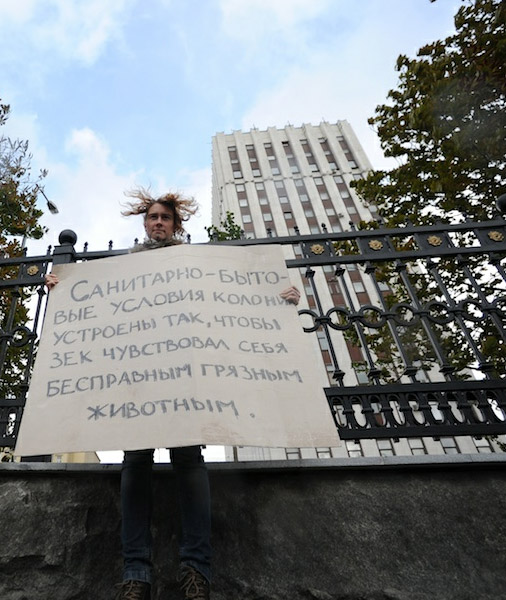 САНИТАРНО-БЫТО-
ВЫЕ УСЛОВИЯ КОЛОНИ
УСТРОЕНЫ ТАК, ЧТОБЫ
ЗЕК ЧУВСТВОВАЛ СЕБЯ
БЕСПРАВНЫМ ГРЯЗНЫМ
ЖИВОТНЫМ.